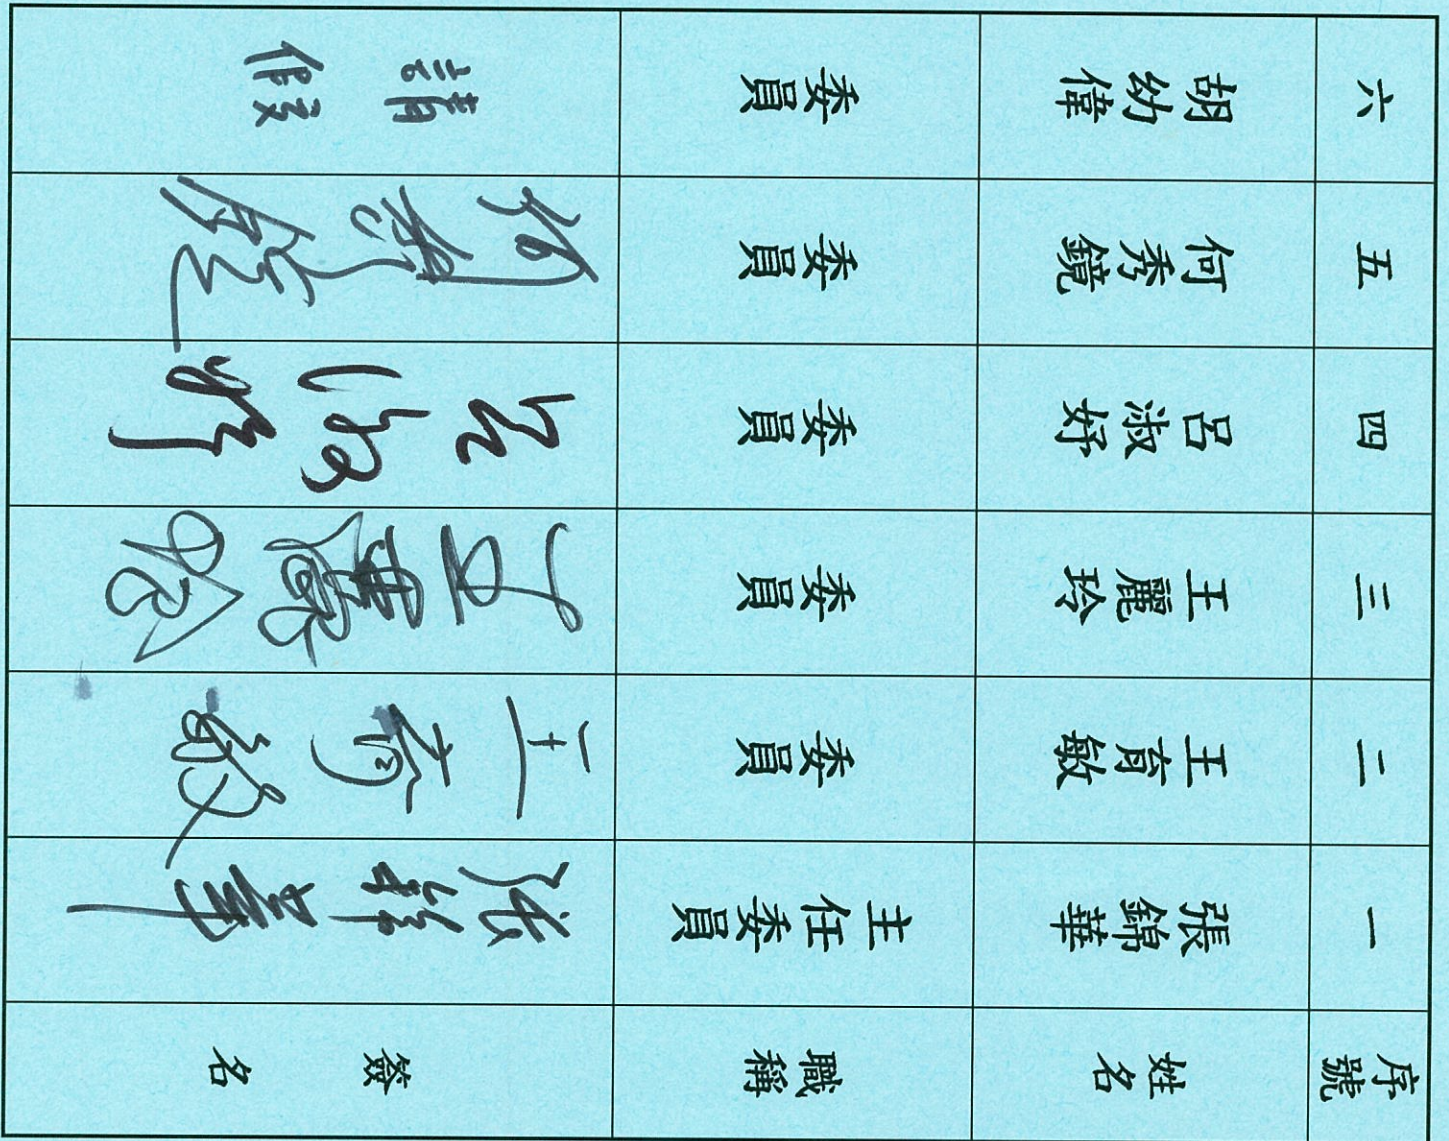 序號 姓名 職稱 簽名
一 張錦華 主任委員 張錦華
二 王育敏 委員 王育敏
三 王麗玲 委員 王麗玲
四 呂淑妤 委員 呂淑妤
五 何秀鏡 委員 何秀鏡
六 胡幼偉 委員 請假